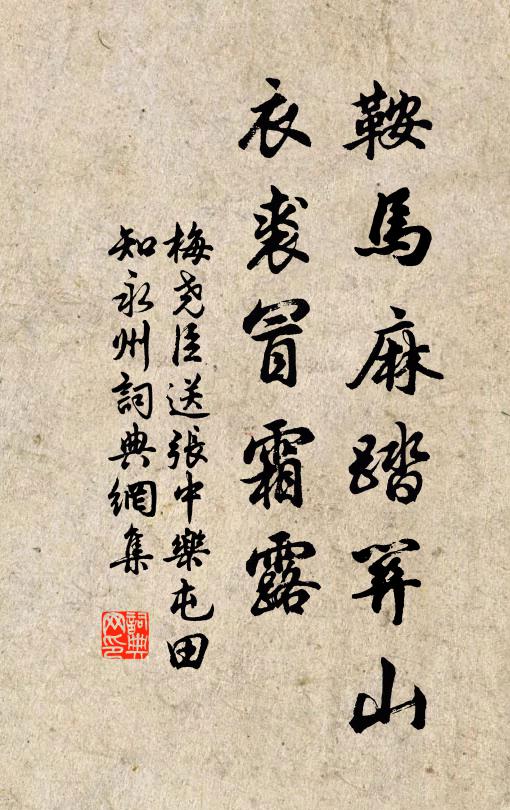 鞍馬麻踏關山
衣裘冒霜露
梅堯臣送張中樂屯田
知永州詞典網集
詞典
网印